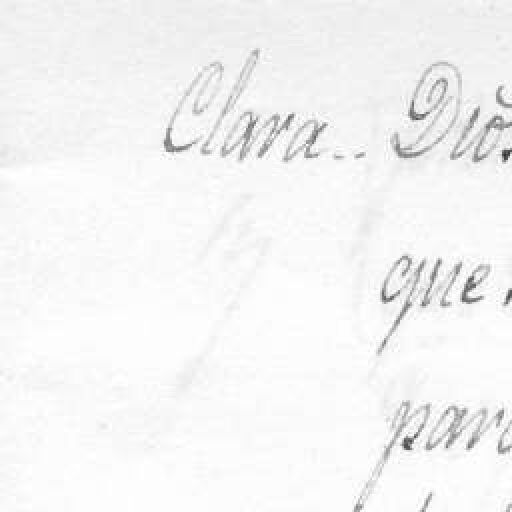 Clara.. Diŏs
que
para